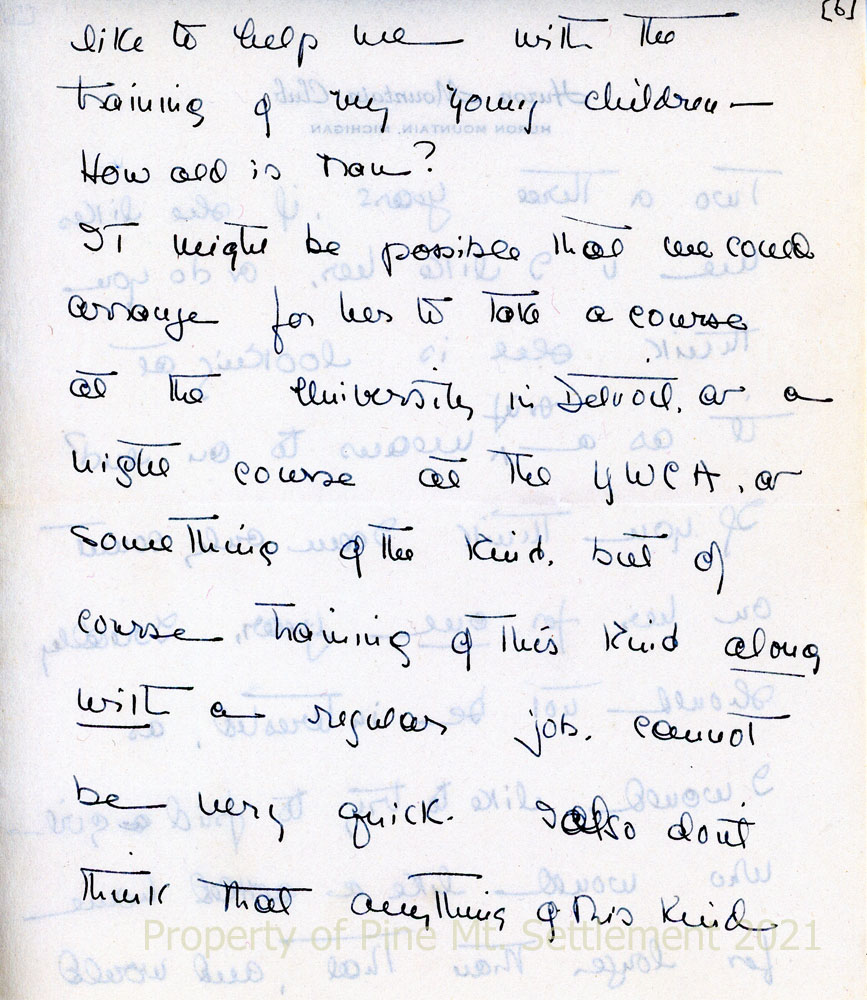 [6]
like to help me with the
training of my young children —
How old is Nan?
It might be possible that we could
arrange for her to take a course
at the University in Detroit, or a
night course at the YWCA, or
something of the kind, but of
course training of this kind along
with a regular job, cannot
be very quick. I also don't
think that anything of this kind
Property of Pine Mt. Settlement 2021
Huron Mountain Club
HURON MOUNTAIN, MICHIGAN